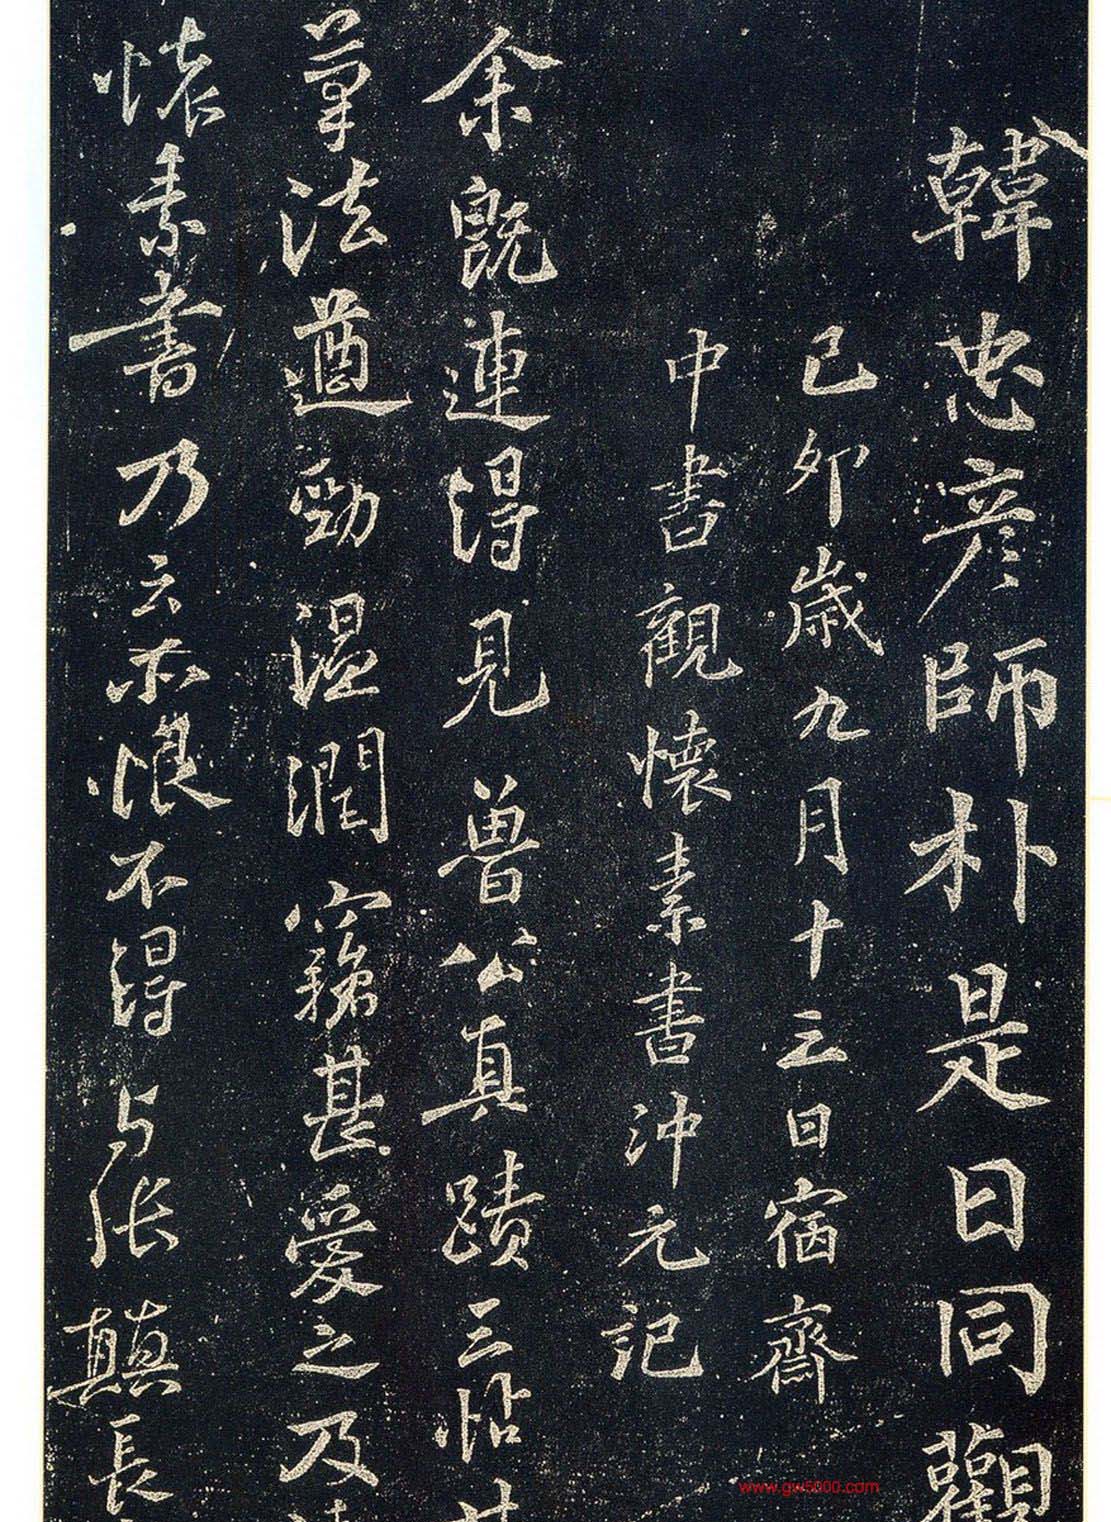 韓忠彦師朴是日同觀
己卯歲九月十三日宿齋
中書觀懷素書沖元記
余既連得見魯公真蹟三帖其
筆法遒勁温潤竊甚愛之及
懷素書乃云亦恨不得与張顛長
www.gw5000.com